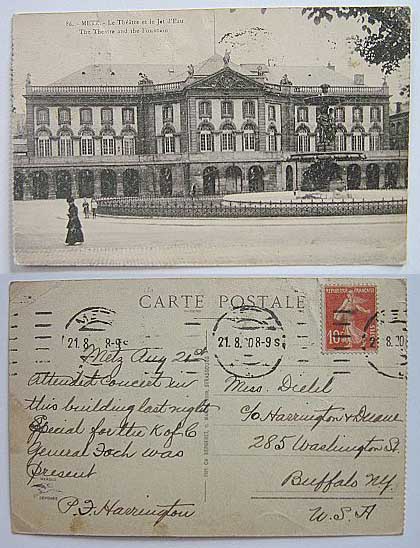 METZ - Le Théâtre et le Jet d'Eau
The Theatre and the Fountain
CARTE POSTALE
21.8 8-9s
21.8. 08-9s
REPUBLIQUE FRANÇAISE
10
Metz Aug 21st
Attended Concert in
this building last night
Special for the K of C
General Foch was
present
P. J. Harrington
MARQUE
DÉPOSÉE
Miss. Diehl
c/o Harrington & Duane
285 Washington St.
Buffalo N.Y.
U.S.A